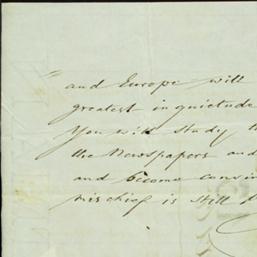 and Europe will
greatest inquietude
You will study
the Newspapers and
and become convin
mischief is still